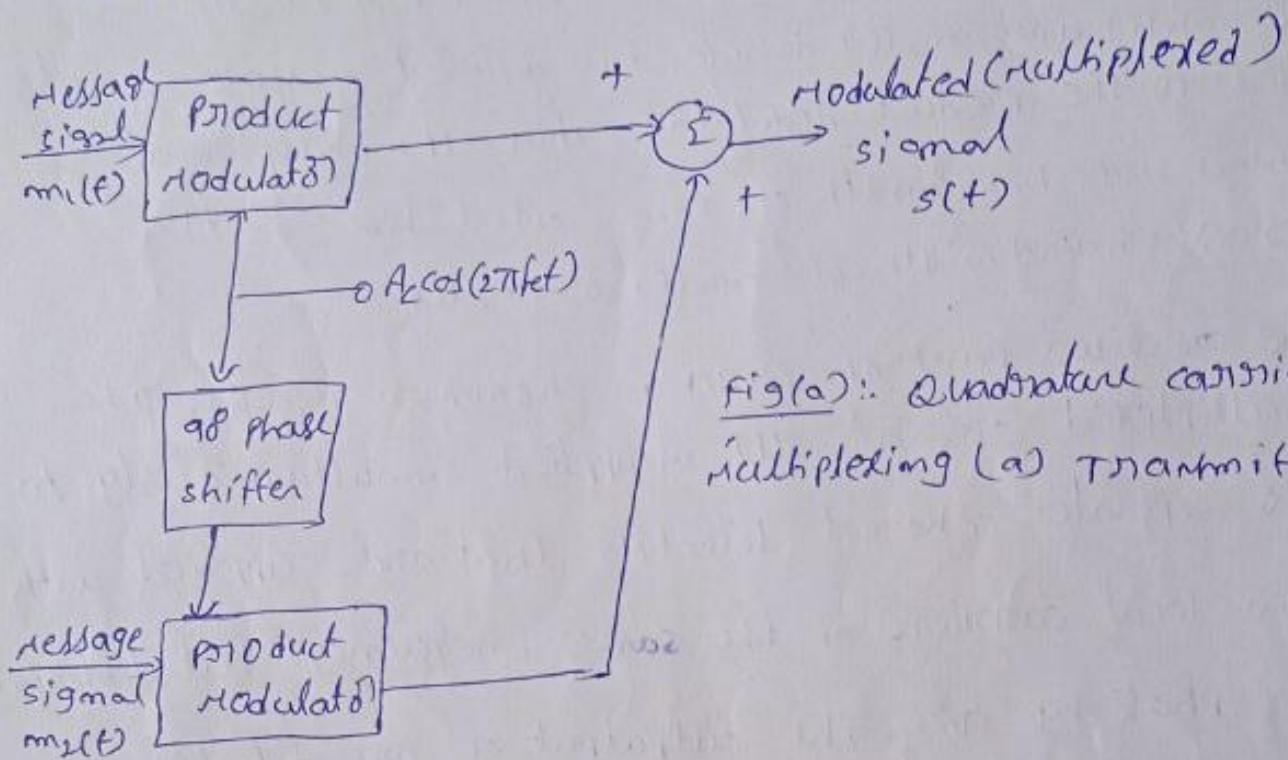 Message
signal
m₁(t)
Product
Modulator
+
Σ
+
Modulated (Multiplexed)
signal
s(t)
A_c cos(2πf_ct)
90° phase
shifter
Fig(a): Quadrature
Multiplexing (a)
Message
signal
m₂(t)
Product
Modulator